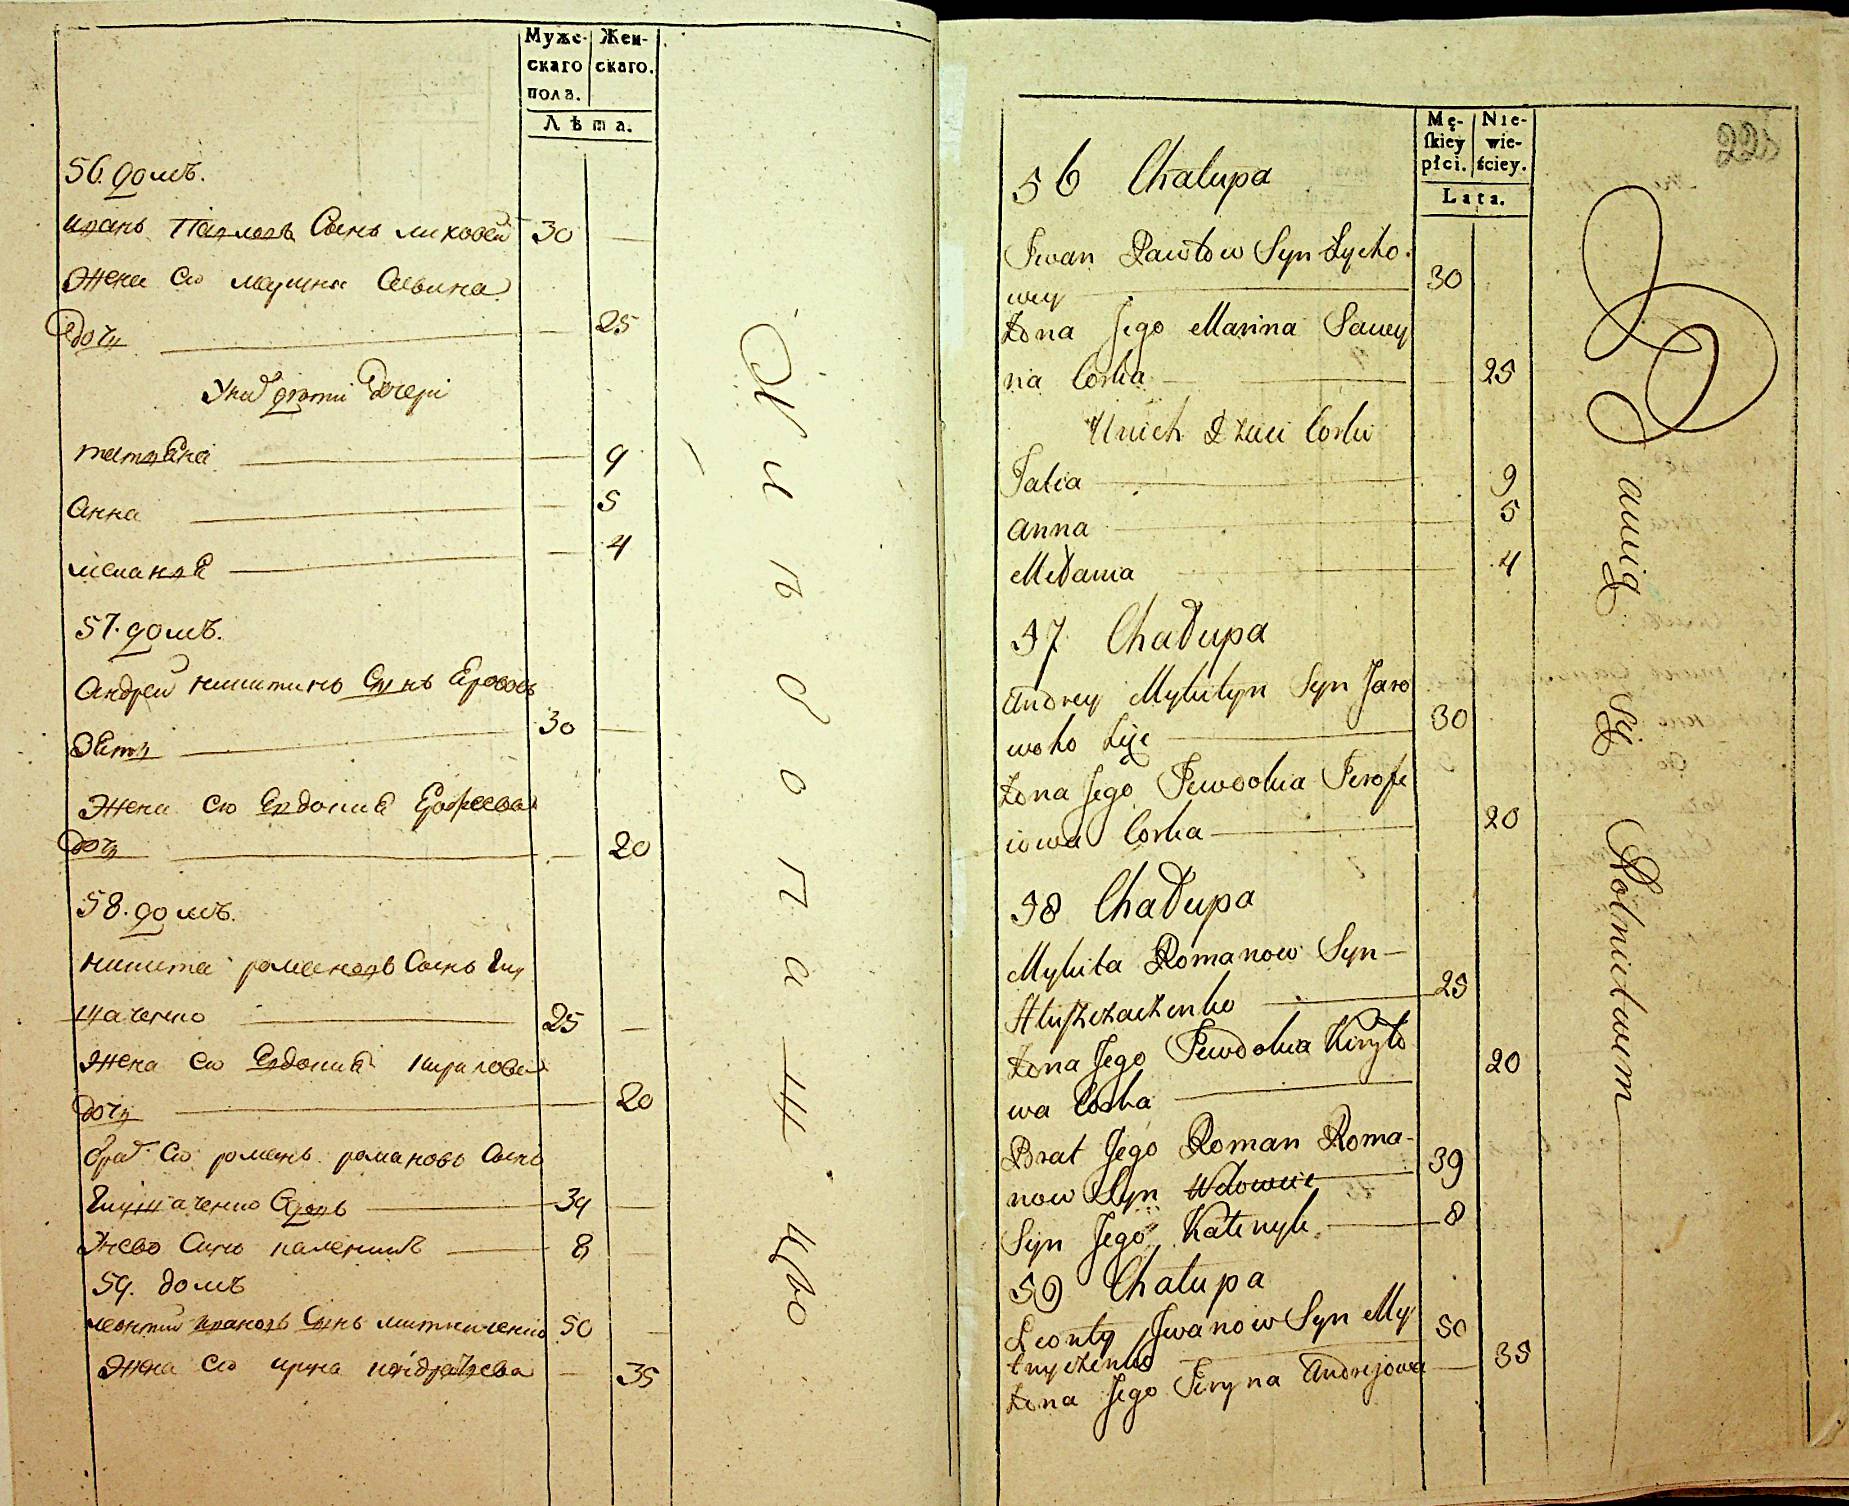 Мужс- Жен-
скаго скаго.
полъ.
Лѣта.
56. домъ.
иванъ Павловъ Сынъ лиховей 30
Жена его марина Савина
дочъ 25
У них дѣти Дочери
татъяна 9
Анна 5
меланъя 4
57. домъ.
Андрей никитинъ Сынъ Еровов
30
Жена его Евдокия Ерофеева
дочъ 20
58. домъ.
никита романовъ Сынъ Глу
щаченко 25
жена его Евдокия кирилова
дочъ 20
брат его романъ романовъ Сынъ
Глущаченко вдовъ 39
У него Сынъ каленикъ 8
59. домъ
леонтий ивановъ Сынъ митниченко 50
Жена его ирина 35
Хлѣбопашцво
Mę- Nie-
skiey wie-
płci. ściey.
Lata.
225
56 Chałupa
Jwan Pawłow Syn Łycho-
wey 30
Żona Jego Marina Sawy
na Corka 25
Unich Dzieci Corki
Tatia 9
Anna 5
Mełania 4
57 Chałupa
Andrey Mykityn Syn Jaro
woho Zięć 30
Żona Jego Jewdokia Jerofe
iowa Corka 20
58 Chałupa
Mykita Romanow Syn—
Hłuszczaczenko 25
Żona Jego Jewdokia Kiryło
wa Corka 20
Brat Jego Roman Roma-
now Syn Wdowiec 39
Syn Jego Kałenyk 8
59 Chałupa
Leonty Jwanow Syn My
tnyczenko 50
Żona Jego Jeryna Andrejowa 35
Bawią Się Rolnictwem